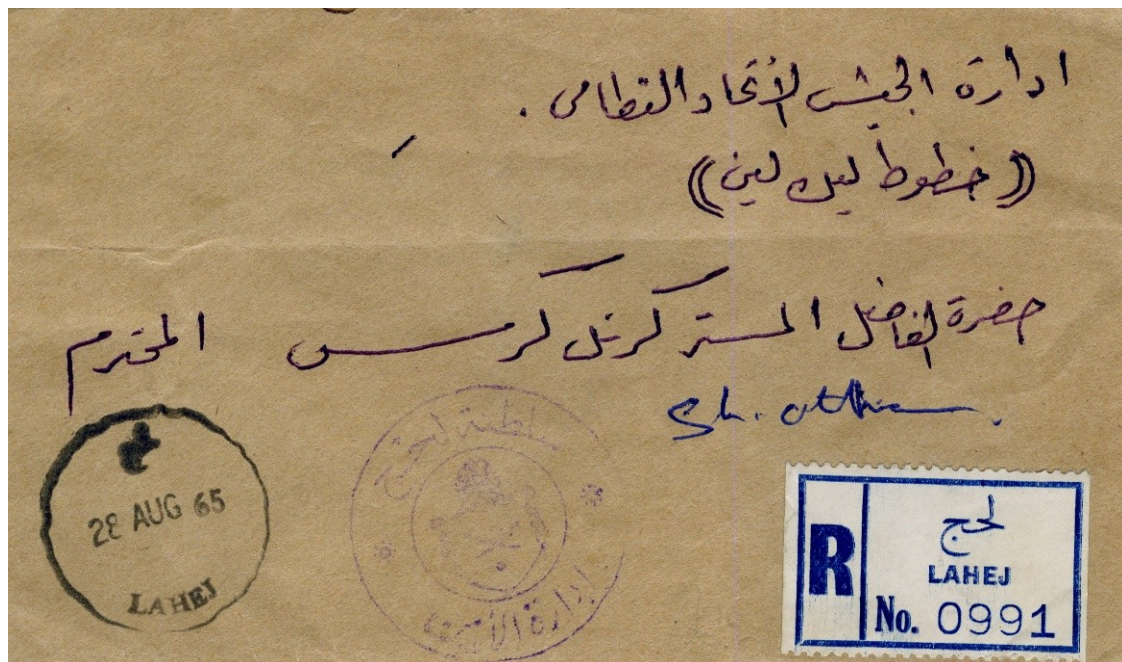 ادارة الجيش الأتحاد النظامي .
((خطوط ليك لين))
حضرة الفاضل المستر كرنل كرس المحترم
Sh. Othman
28 AUG 65
LAHEJ
سلطنة لحج
إدارة الأمن
R
لحج
LAHEJ
No. 0991